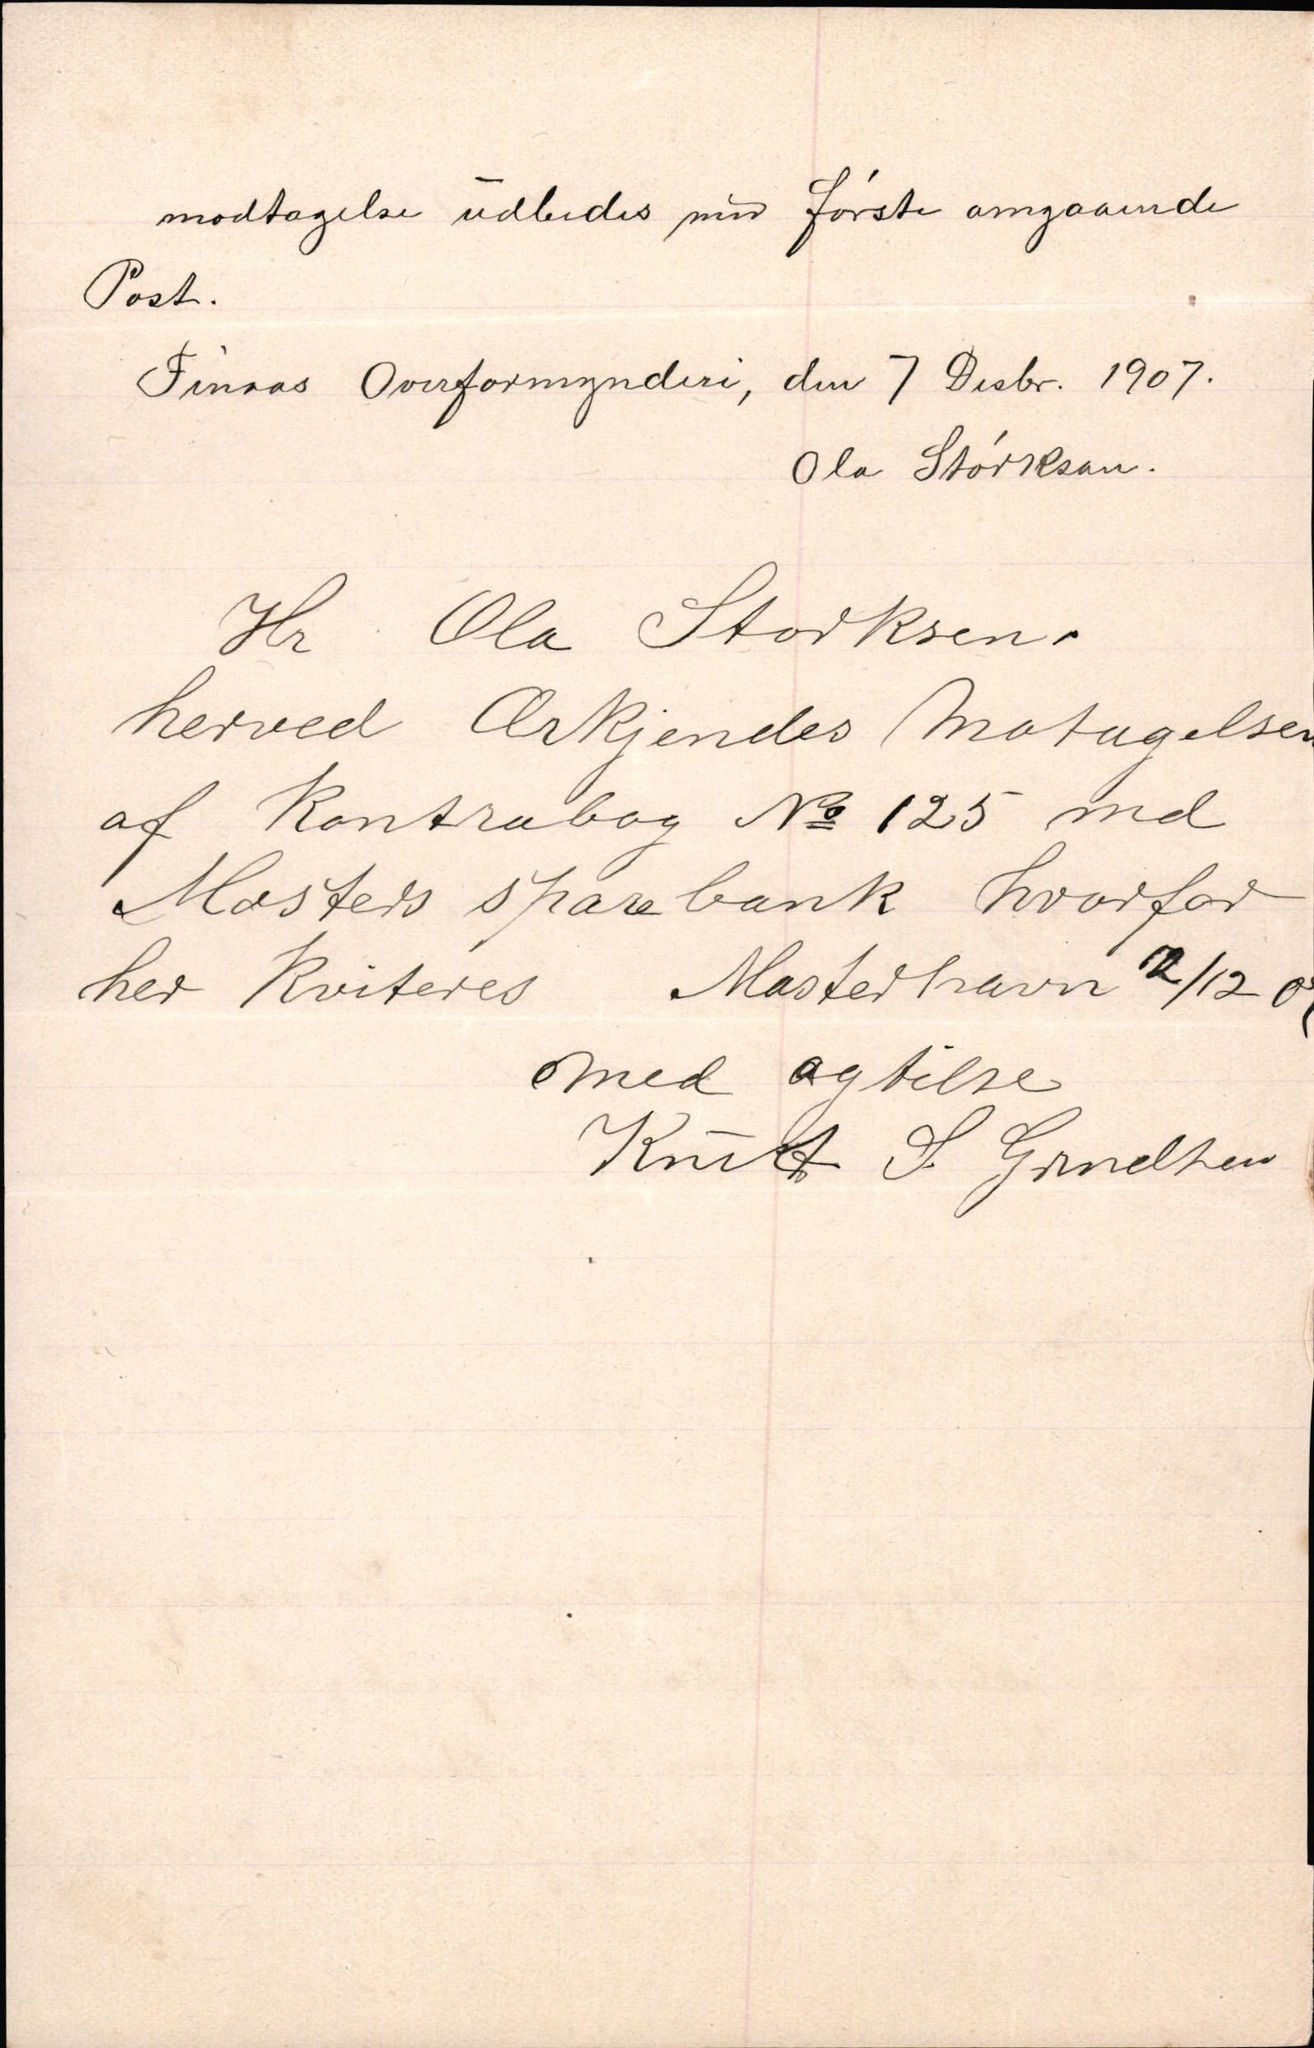 modtagelse udbedes med förste omgaaende
Post.
Finaas Overformynderi, den 7 Desbr. 1907.
Ola Störksen.
Hr Ola Storksen.
herved Erkjendes Motagelsen
af Kontrabog No 125 med
Mosters sparebank hvorfor
her Kviteres Mosterhavn 12/12 07
med agtilse
Knut S